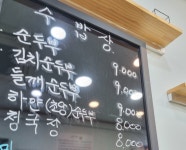 수 밥 장
순두부 9.000
김치순두부 9.000
들깨순두부 9.000
하얀(초당)순두부 8.000
청국장 8.000